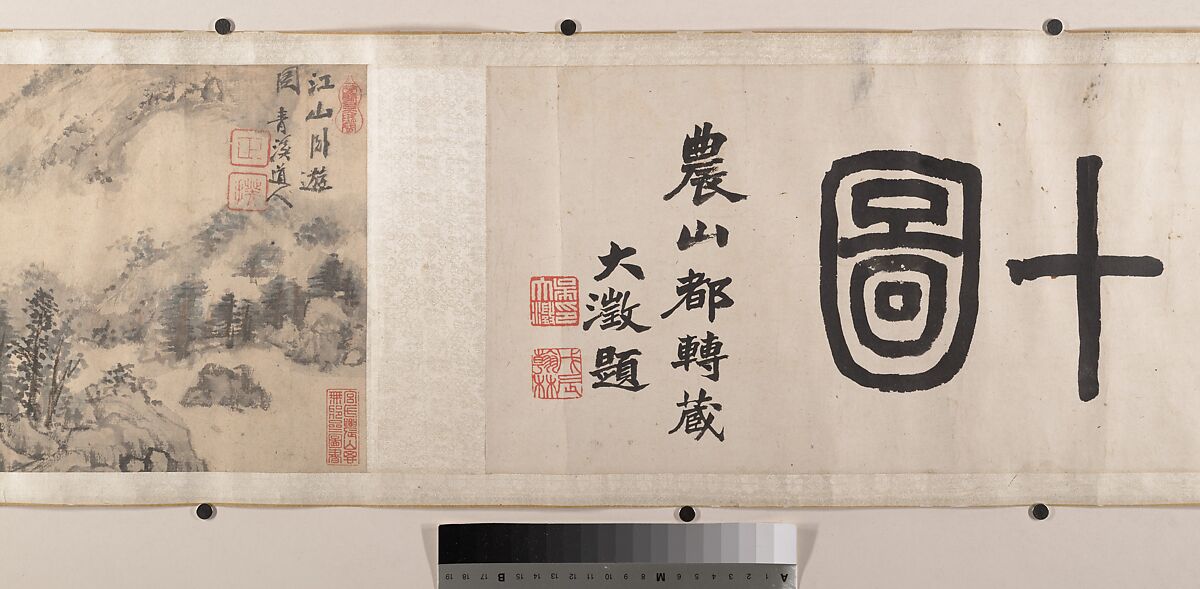 十圖
農山都轉藏
大澂題
吳大澂印
戊辰翰林
江山卧遊
圖 青溪道人
正
揆
A 1 2 3 4 5 6 M 8 9 10 11 12 13 14 15 B 17 18 19